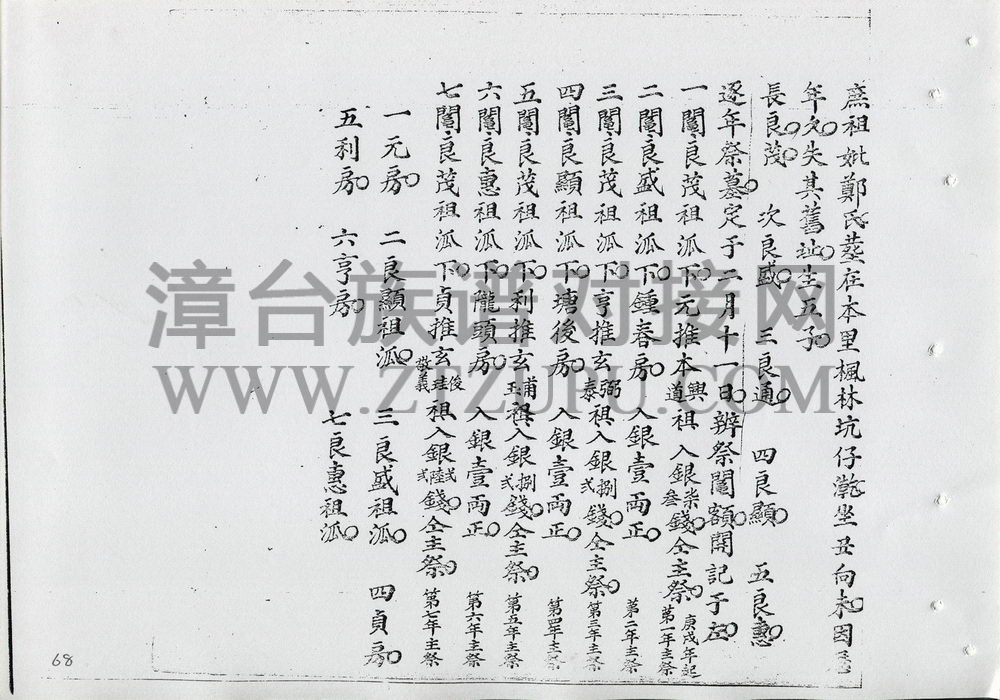 祖妣鄭氏墓在本里楓林坑仔瀧坐丑向未因
年久失其舊址生五子
長良茂 次良盛 三良通 四良顯 五良惠
逐年祭墓定于二月十一日辦祭鬮額開記于左
一鬮良茂祖派下元推本興道祖入銀柒叁錢仝主祭 庚戌年起第一年主祭
二鬮良盛祖派下鍾春房入銀壹両正 第二年主祭
三鬮良茂祖派下亨推玄弼泰祖入銀捌弍錢仝主祭 第三年主祭
四鬮良顯祖派下塘後房入銀壹両正 第四年主祭
五鬮良茂祖派下利推玄甫玉祖入銀捌弍錢仝主祭 第五年主祭
六鬮良惠祖派下隴頭房入銀壹両正 第六年主祭
七鬮良茂祖派下貞推玄俊珪敬義祖入銀弍陸弍錢仝主祭 第七年主祭
一元房 二良顯祖派 三良盛祖派 四貞房
五利房 六亨房 七良惠祖派
68
漳台族谱对接网
WWW.ZTZUPU.COM